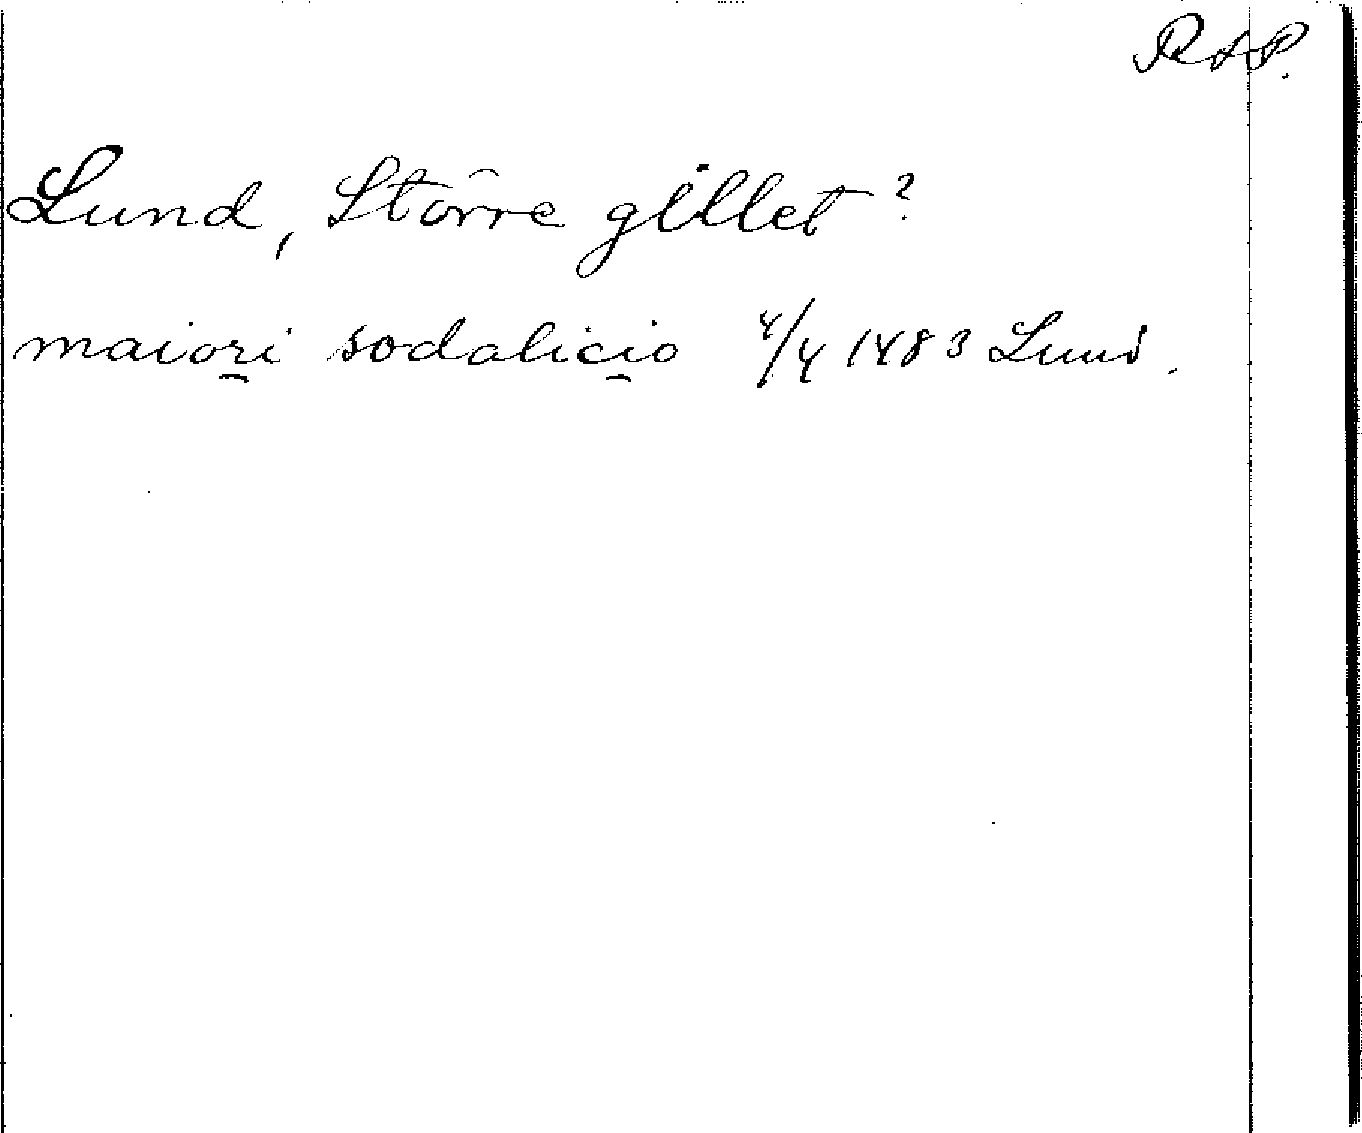 RAP.
Lund, Större gillet?
maiori sodalicio 4/4 1483 Lund.